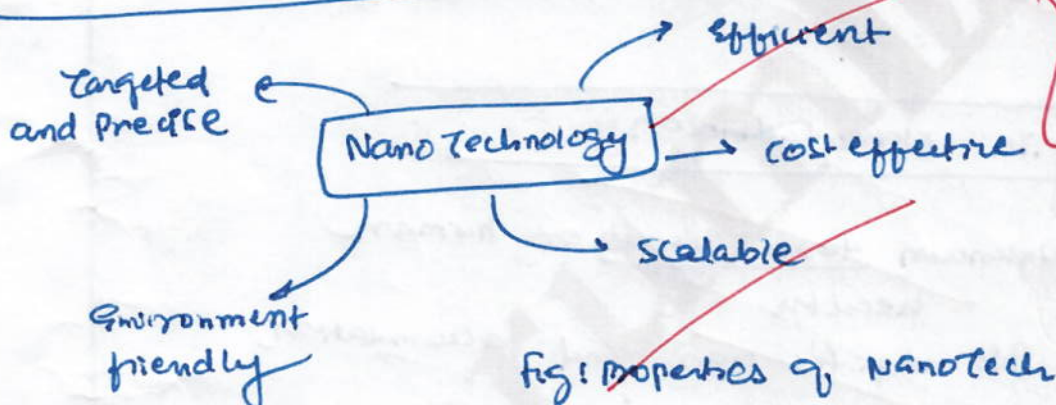 Efficient
Targeted
and Precise
Nano Technology
cost effective
scalable
Environment
friendly
fig: properties of NanoTech